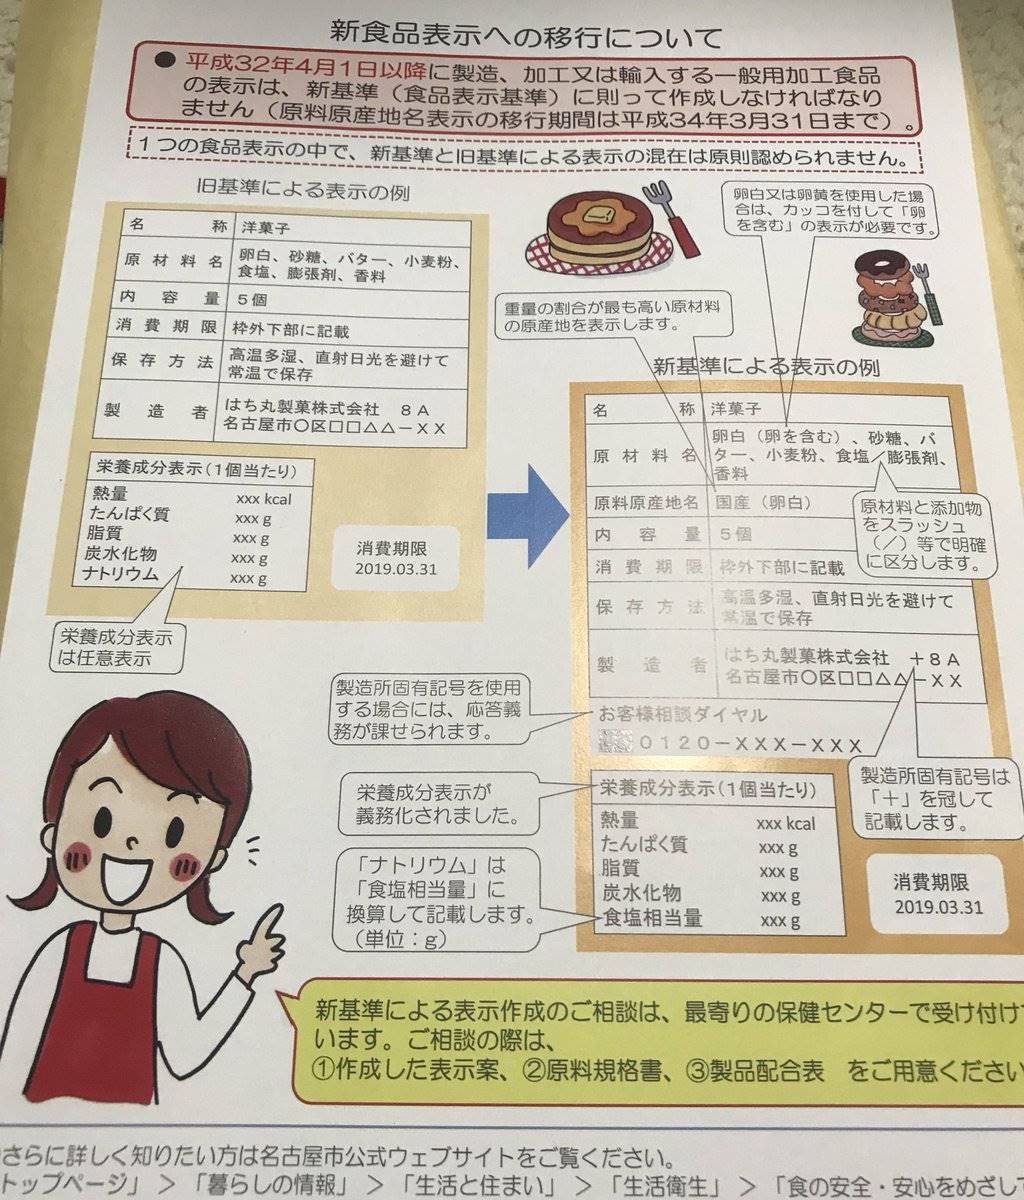 新食品表示への移行について
● 平成32年4月1日以降に製造、加工又は輸入する一般用加工食品
の表示は、新基準（食品表示基準）に則って作成しなければなり
ません（原料原産地名表示の移行期間は平成34年3月31日まで）。
１つの食品表示の中で、新基準と旧基準による表示の混在は原則認められません。
旧基準による表示の例
名称 洋菓子
原材料名 卵白、砂糖、バター、小麦粉、
食塩、膨張剤、香料
内容量 ５個
消費期限 枠外下部に記載
保存方法 高温多湿、直射日光を避けて
常温で保存
製造者 はち丸製菓株式会社 ８Ａ
名古屋市〇区□□△△－ＸＸ
栄養成分表示（１個当たり）
熱量 xxx kcal
たんぱく質 xxx g
脂質 xxx g
炭水化物 xxx g
ナトリウム xxx g
消費期限
2019.03.31
栄養成分表示
は任意表示
卵白又は卵黄を使用した場
合は、カッコを付して「卵
を含む」の表示が必要です。
重量の割合が最も高い原材料
の原産地を表示します。
新基準による表示の例
名称 洋菓子
原材料名 卵白（卵を含む）、砂糖、バ
ター、小麦粉、食塩／膨張剤、
香料
原料原産地名 国産（卵白）
内容量 ５個
消費期限 枠外下部に記載
保存方法 高温多湿、直射日光を避けて
常温で保存
製造者 はち丸製菓株式会社 ＋８Ａ
名古屋市〇区□□△△－ＸＸ
お客様相談ダイヤル
０１２０－ＸＸＸ－ＸＸＸ
原材料と添加物
をスラッシュ
（／）等で明確
に区分します。
製造所固有記号を使用
する場合には、応答義
務が課せられます。
製造所固有記号は
「＋」を冠して
記載します。
栄養成分表示が
義務化されました。
「ナトリウム」は
「食塩相当量」に
換算して記載します。
（単位：g）
栄養成分表示（１個当たり）
熱量 xxx kcal
たんぱく質 xxx g
脂質 xxx g
炭水化物 xxx g
食塩相当量 xxx g
消費期限
2019.03.31
新基準による表示作成のご相談は、最寄りの保健センターで受け付けて
います。ご相談の際は、
①作成した表示案、②原料規格書、③製品配合表 をご用意ください
さらに詳しく知りたい方は名古屋市公式ウェブサイトをご覧ください。
トップページ」 ＞ 「暮らしの情報」 ＞ 「生活と住まい」 ＞ 「生活衛生」 ＞ 「食の安全・安心をめざして